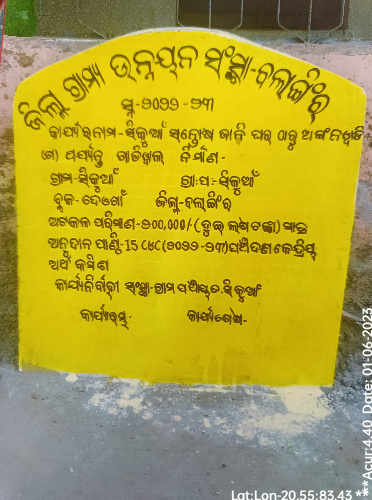 ଜିଲ୍ଲା ଗ୍ରାମ୍ୟ ଉନ୍ନୟନ ସଂସ୍ଥା-ବଲାଙ୍ଗିର
ସ୍ନ-୨୦୨୨-୨୩
କାର୍ଯ୍ୟର ନାମ-ସିକୁଆଁ ସନ୍ତୋଷ ଜାନି ଘର ଠାରୁ
ପର୍ଯ୍ୟନ୍ତ ଗାଡିୱାଲ ନିର୍ମାଣ-
ଗ୍ରାମ-ସିକୁଆଁ ଗ୍ରା:ପ:-ସିକୁଆଁ
ବ୍ଲକ-ଦେଓଗାଁ ଜିଲ୍ଲା-ବଲାଙ୍ଗିର
ଅଟକଳ ପରିମାଣ-୨୦୦,୦୦୦/-(ଦୁଇ ଲକ୍ଷ ଟଙ୍କା) ମାତ୍ର
ଅନୁଦାନ ପାଣ୍ଠି-15 (୨୦୨୨-୨୩)ପଞ୍ଚଦଶ କେନ୍ଦ୍ରିୟ
ଅର୍ଥ କମିଶନ
କାର୍ଯ୍ୟନିର୍ବାହୀ ସଂସ୍ଥା-ଗ୍ରାମ ପଞ୍ଚାୟତ-ସିକୁଆଁ
କାର୍ଯ୍ୟାରମ୍ଭ- କାର୍ଯ୍ୟଶେଷ-
Lat:Lon-20.55:83.43 ***Acur:4.40 Date: 01-06-2023